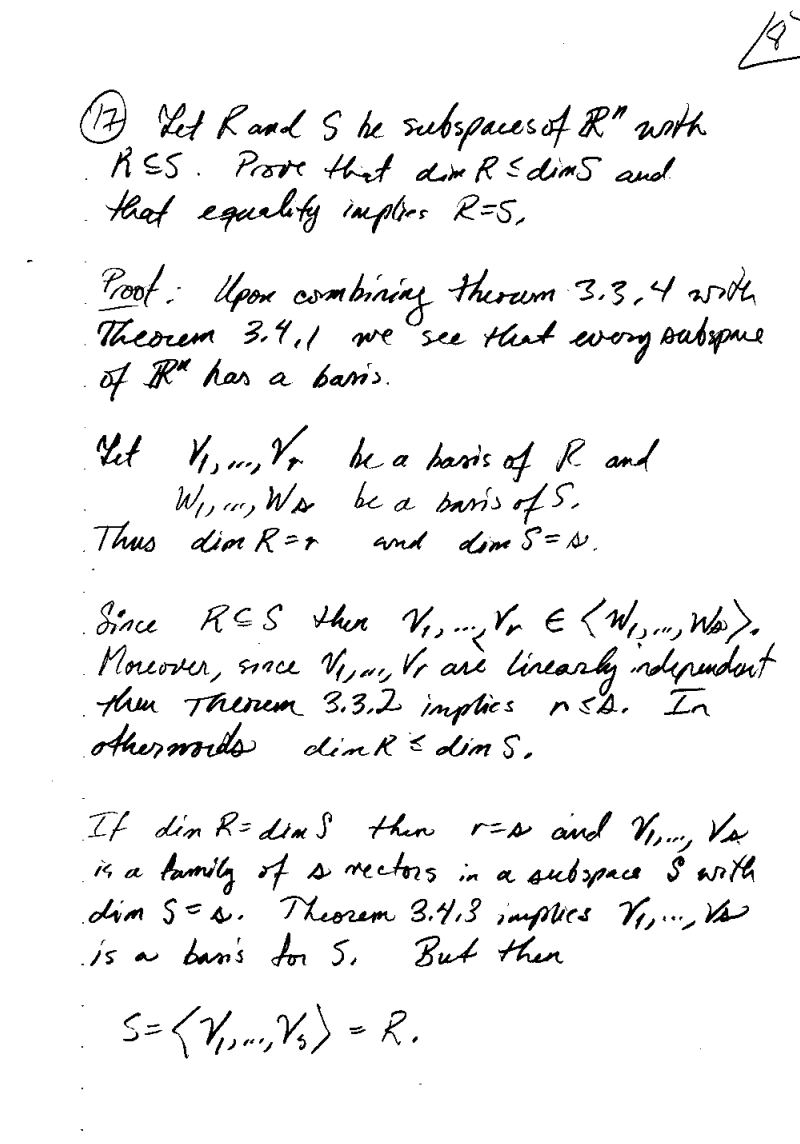 18
(17) Let R and S be subspaces of ℝⁿ with
R ⊆ S. Prove that dim R ≤ dim S and
that equality implies R=S.
Proof: Upon combining theorem 3.3.4 with
Theorem 3.4.1 we see that every subspace
of ℝⁿ has a basis.
Let V₁, ..., Vᵣ be a basis of R and
W₁, ..., Wₛ be a basis of S.
Thus dim R = r and dim S = s.
Since R ⊆ S then V₁, ..., Vᵣ ∈ ⟨W₁, ..., Wₛ⟩.
Moreover, since V₁, ..., Vᵣ are linearly independent
then Theorem 3.3.2 implies r ≤ s. In
otherwords dim R ≤ dim S.
If dim R = dim S then r = s and V₁, ..., Vₛ
is a family of s vectors in a subspace S with
dim S = s. Theorem 3.4.3 implies V₁, ..., Vₛ
is a basis for S. But then
S = ⟨V₁, ..., Vₛ⟩ = R.